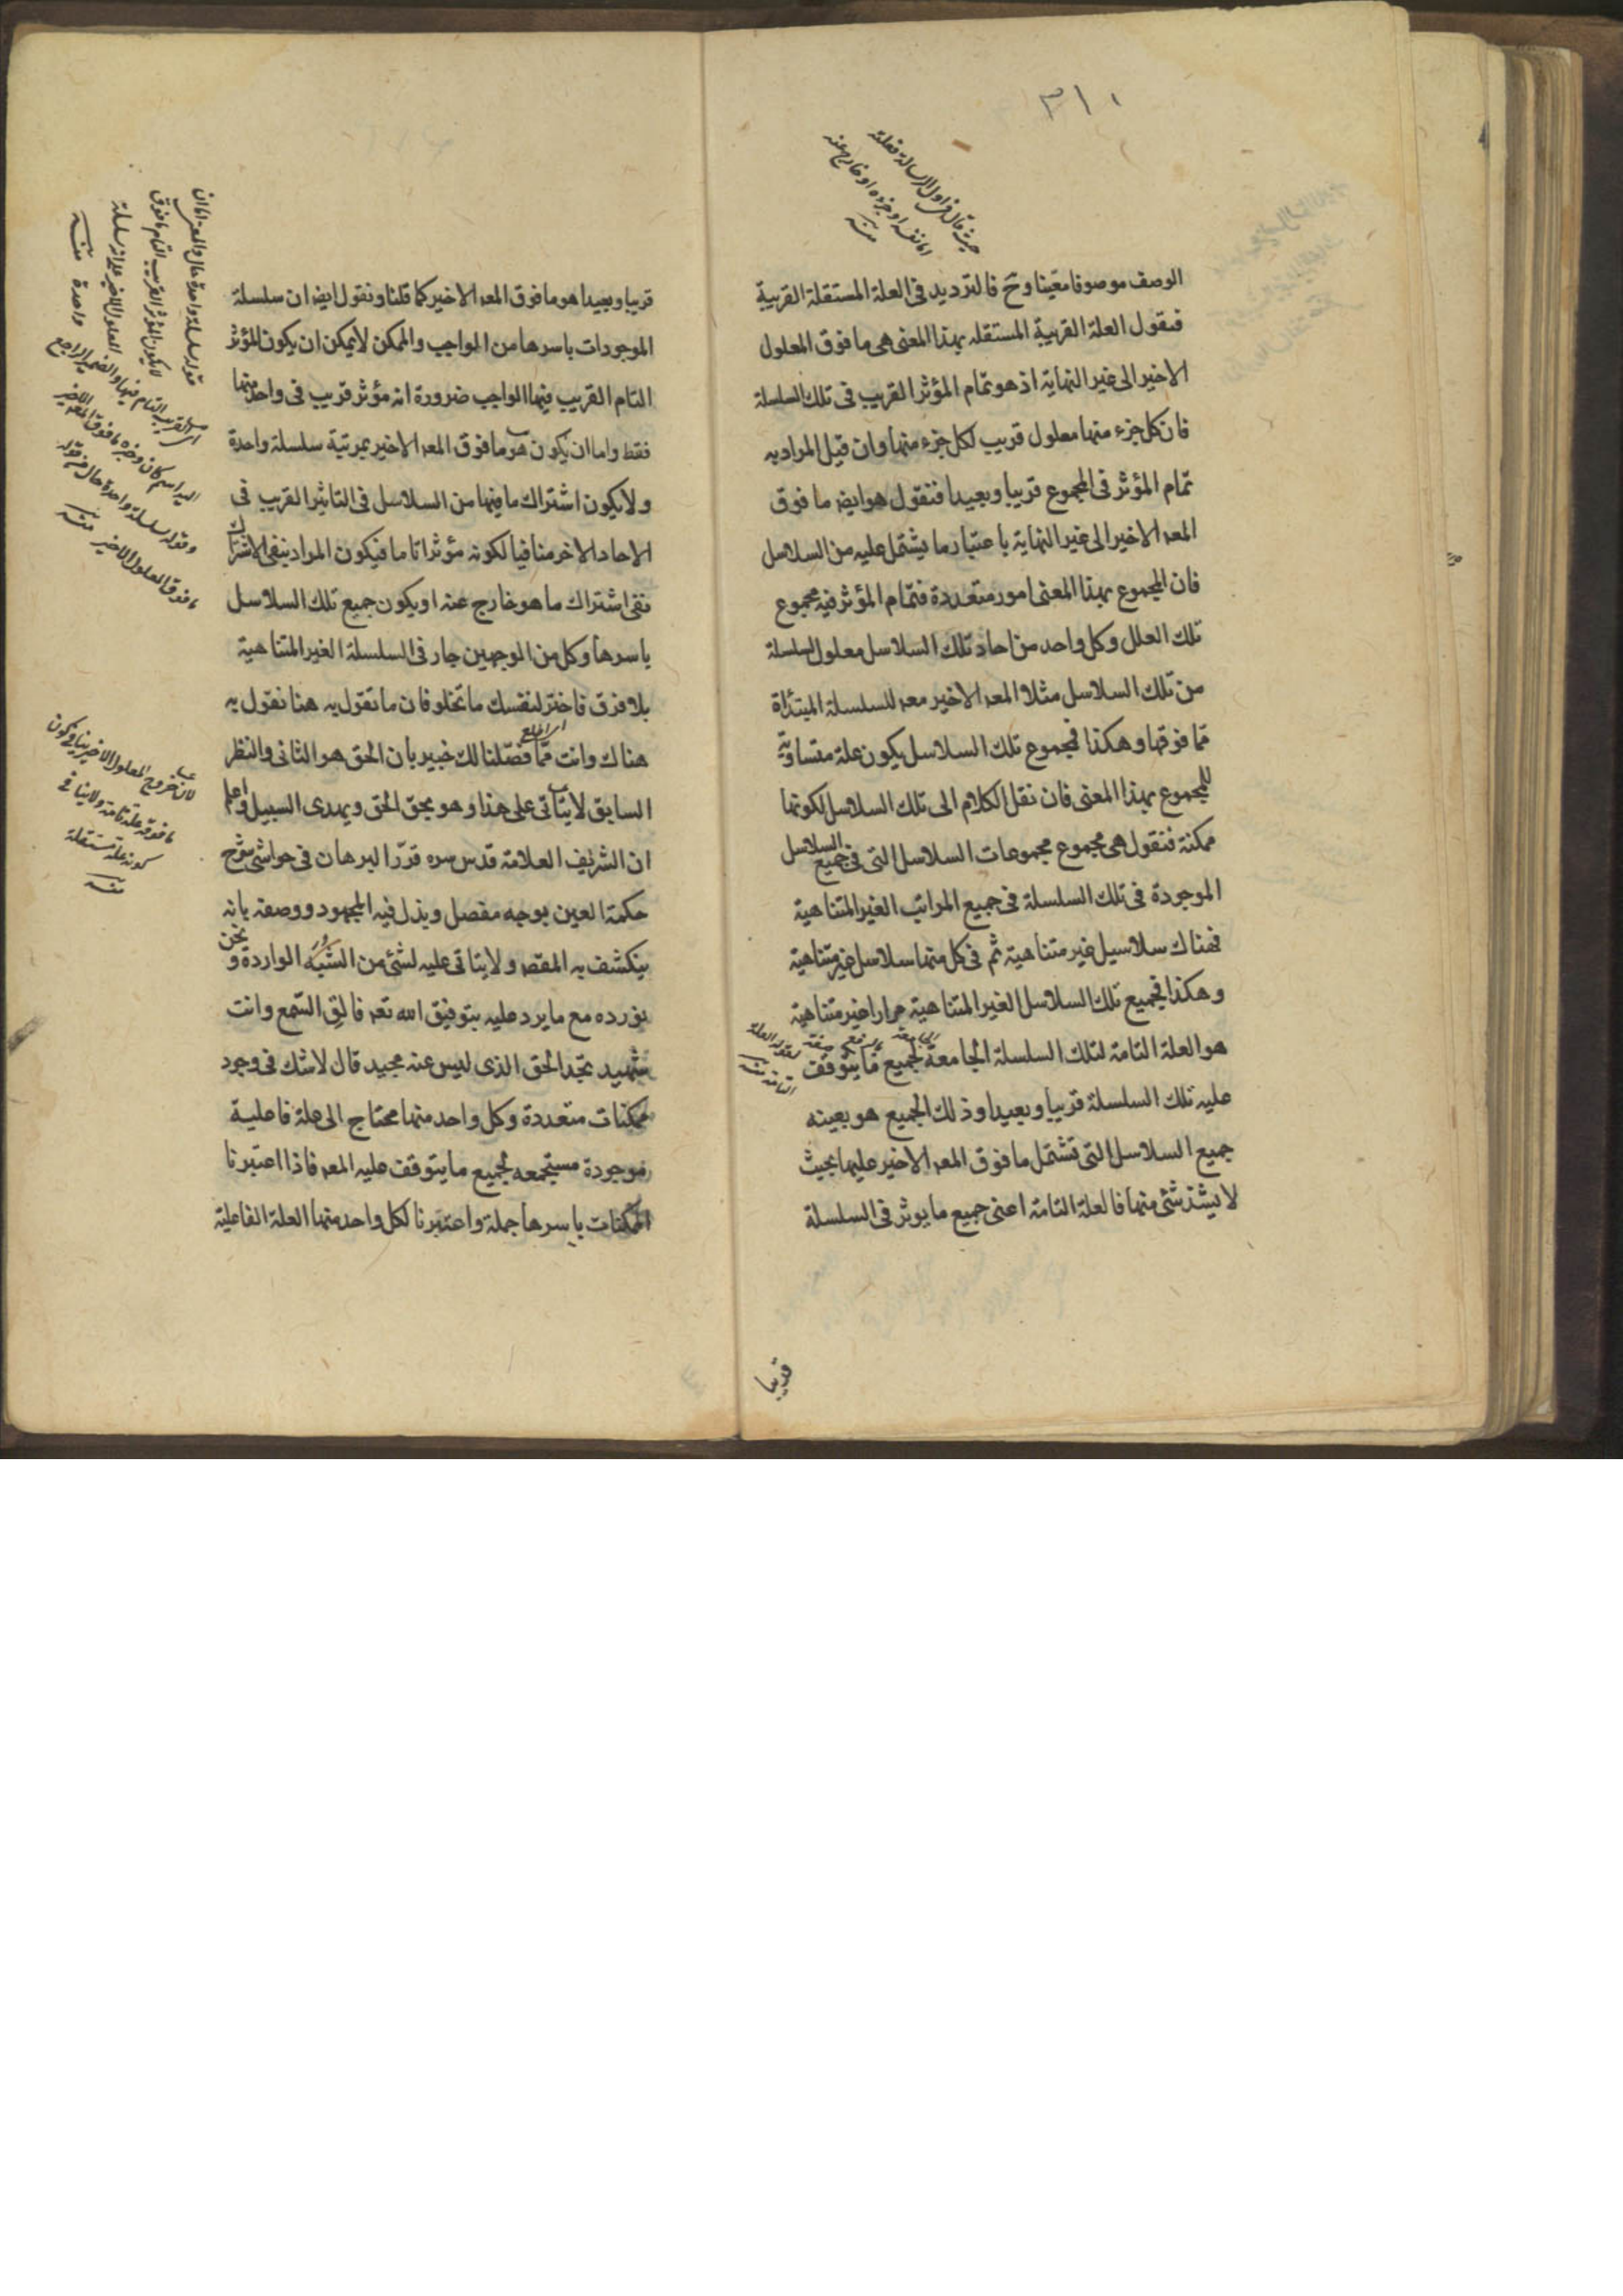 ٣١١
حيث قال في اول الرسالة فعلته
اما نفسه او جزؤه او خارج عنه
منه
الوصف موصوفا معينا وح فالترديد فى العلة المستقلة القريبة
فنقول العلة القريبة المستقلة بهذا المعنى هى ما فوق المعلول
الاخير الى غير النهاية اذ هو تمام المؤثر القريب فى تلك السلسلة
فان كل جزء منها معلول قريب لكل جزء منها وان قيل المراد به
تمام المؤثر فى المجموع قريبا وبعيدا فنقول هو ايضه ما فوق
المعه الاخير الى غير النهاية باعتبار ما يشتمل عليه من السلاسل
فان المجموع بهذا المعنى امور متعددة فتمام المؤثر فيه مجموع
تلك العلل وكل واحد من احاد تلك السلاسل معلول لسلسلة
من تلك السلاسل مثلا المعه الاخير معه للسلسلة المبتدأة
مما فوقها وهكذا فمجموع تلك السلاسل يكون علة متساوية
للمجموع بهذا المعنى فان نقل الكلام الى تلك السلاسل لكونها
ممكنة فنقول هى مجموع مجموعات السلاسل التى فى جميع السلاسل
الموجودة فى تلك السلسلة فى جميع المراتب الغير المتناهية
فهناك سلاسيل غير متناهية ثم فى كل منها سلاسل غير متناهية
وهكذا فجميع تلك السلاسل الغير المتناهية مرارا غير متناهية
هو العلة التامة لتلك السلسلة الجامعة لجميع ما يتوقف
صفة لقوله العلة
التامة منه
عليه تلك السلسلة قريبا وبعيدا وذلك الجميع هو بعينه
جميع السلاسل التى تشتمل ما فوق المعه الاخير عليها بحيث
لا يشذ شئ منها فالعلة التامة اعنى جميع ما يوثر فى السلسلة
قريبا
قريبا وبعيدا هو ما فوق المعه الاخير كما قلنا ونقول ايضه ان سلسلة
الموجودات باسرها من الواجب والممكن لا يمكن ان يكون المؤثر
التام القريب فيها الواجب ضرورة انه مؤثر قريب فى واحد منها
فقط واما ان يكون هو ما فوق المعه الاخير بمرتبة سلسلة واحدة
ولا يكون اشتراك ما فيها من السلاسل فى التاثير القريب فى
الاحاد الاخر منافيا لكونه مؤثرا تاما فيكون المراد بنفى الاشتراك
نفى اشتراك ما هو خارج عنه او يكون جميع تلك السلاسل
باسرها وكل من الوجهين جار فى السلسلة الغير المتناهية
بلا فرق فاختر لنفسك ما تخلو فان ما تقول به هنا نقول به
هناك وانت مما فصلنا لك خبير بان الحق هو الثانى والنظر
السابق لا يتأتى على هذا وهو يحق الحق ويهدى السبيل واعلم
ان الشريف العلامة قدس سره قرر البرهان فى حواشى شرح
حكمة العين بوجه مفصل وبذل فيه المجهود ووصفه بانه
ينكشف به المقصه ولا يتاتى عليه لشئ من الشبه الواردة ونحن
نورده مع ما يرد عليه بتوفيق الله تعه فالق السمع وانت
شهيد تجد الحق الذى ليس عنه محيد قال لا شك فى وجود
ممكنات متعددة وكل واحد منها محتاج الى علة فاعلية
موجودة مستجمعه لجميع ما يتوقف عليه المعه فاذا اعتبرنا
الممكنات باسرها جملة واعتبرنا لكل واحد منها العلة الفاعلية
قوله سلسلة واحدة حال والمعنى اما ان
لا يكون المؤثر القريب التام ما فوق
المعلول الاخير سلسلة
واحدة منه
اى القريب التام فيها والضمير الراجع
اليه اسم كان وخبره ما فوق المعه الاخير
وقوله سلسلة واحدة حال من قوله
ما فوق المعلول الاخير منه
لان خروج المعلول الاخير ينافى كون
ما فوقه علة تامة ولا ينافى
كونه علة مستقلة
منه